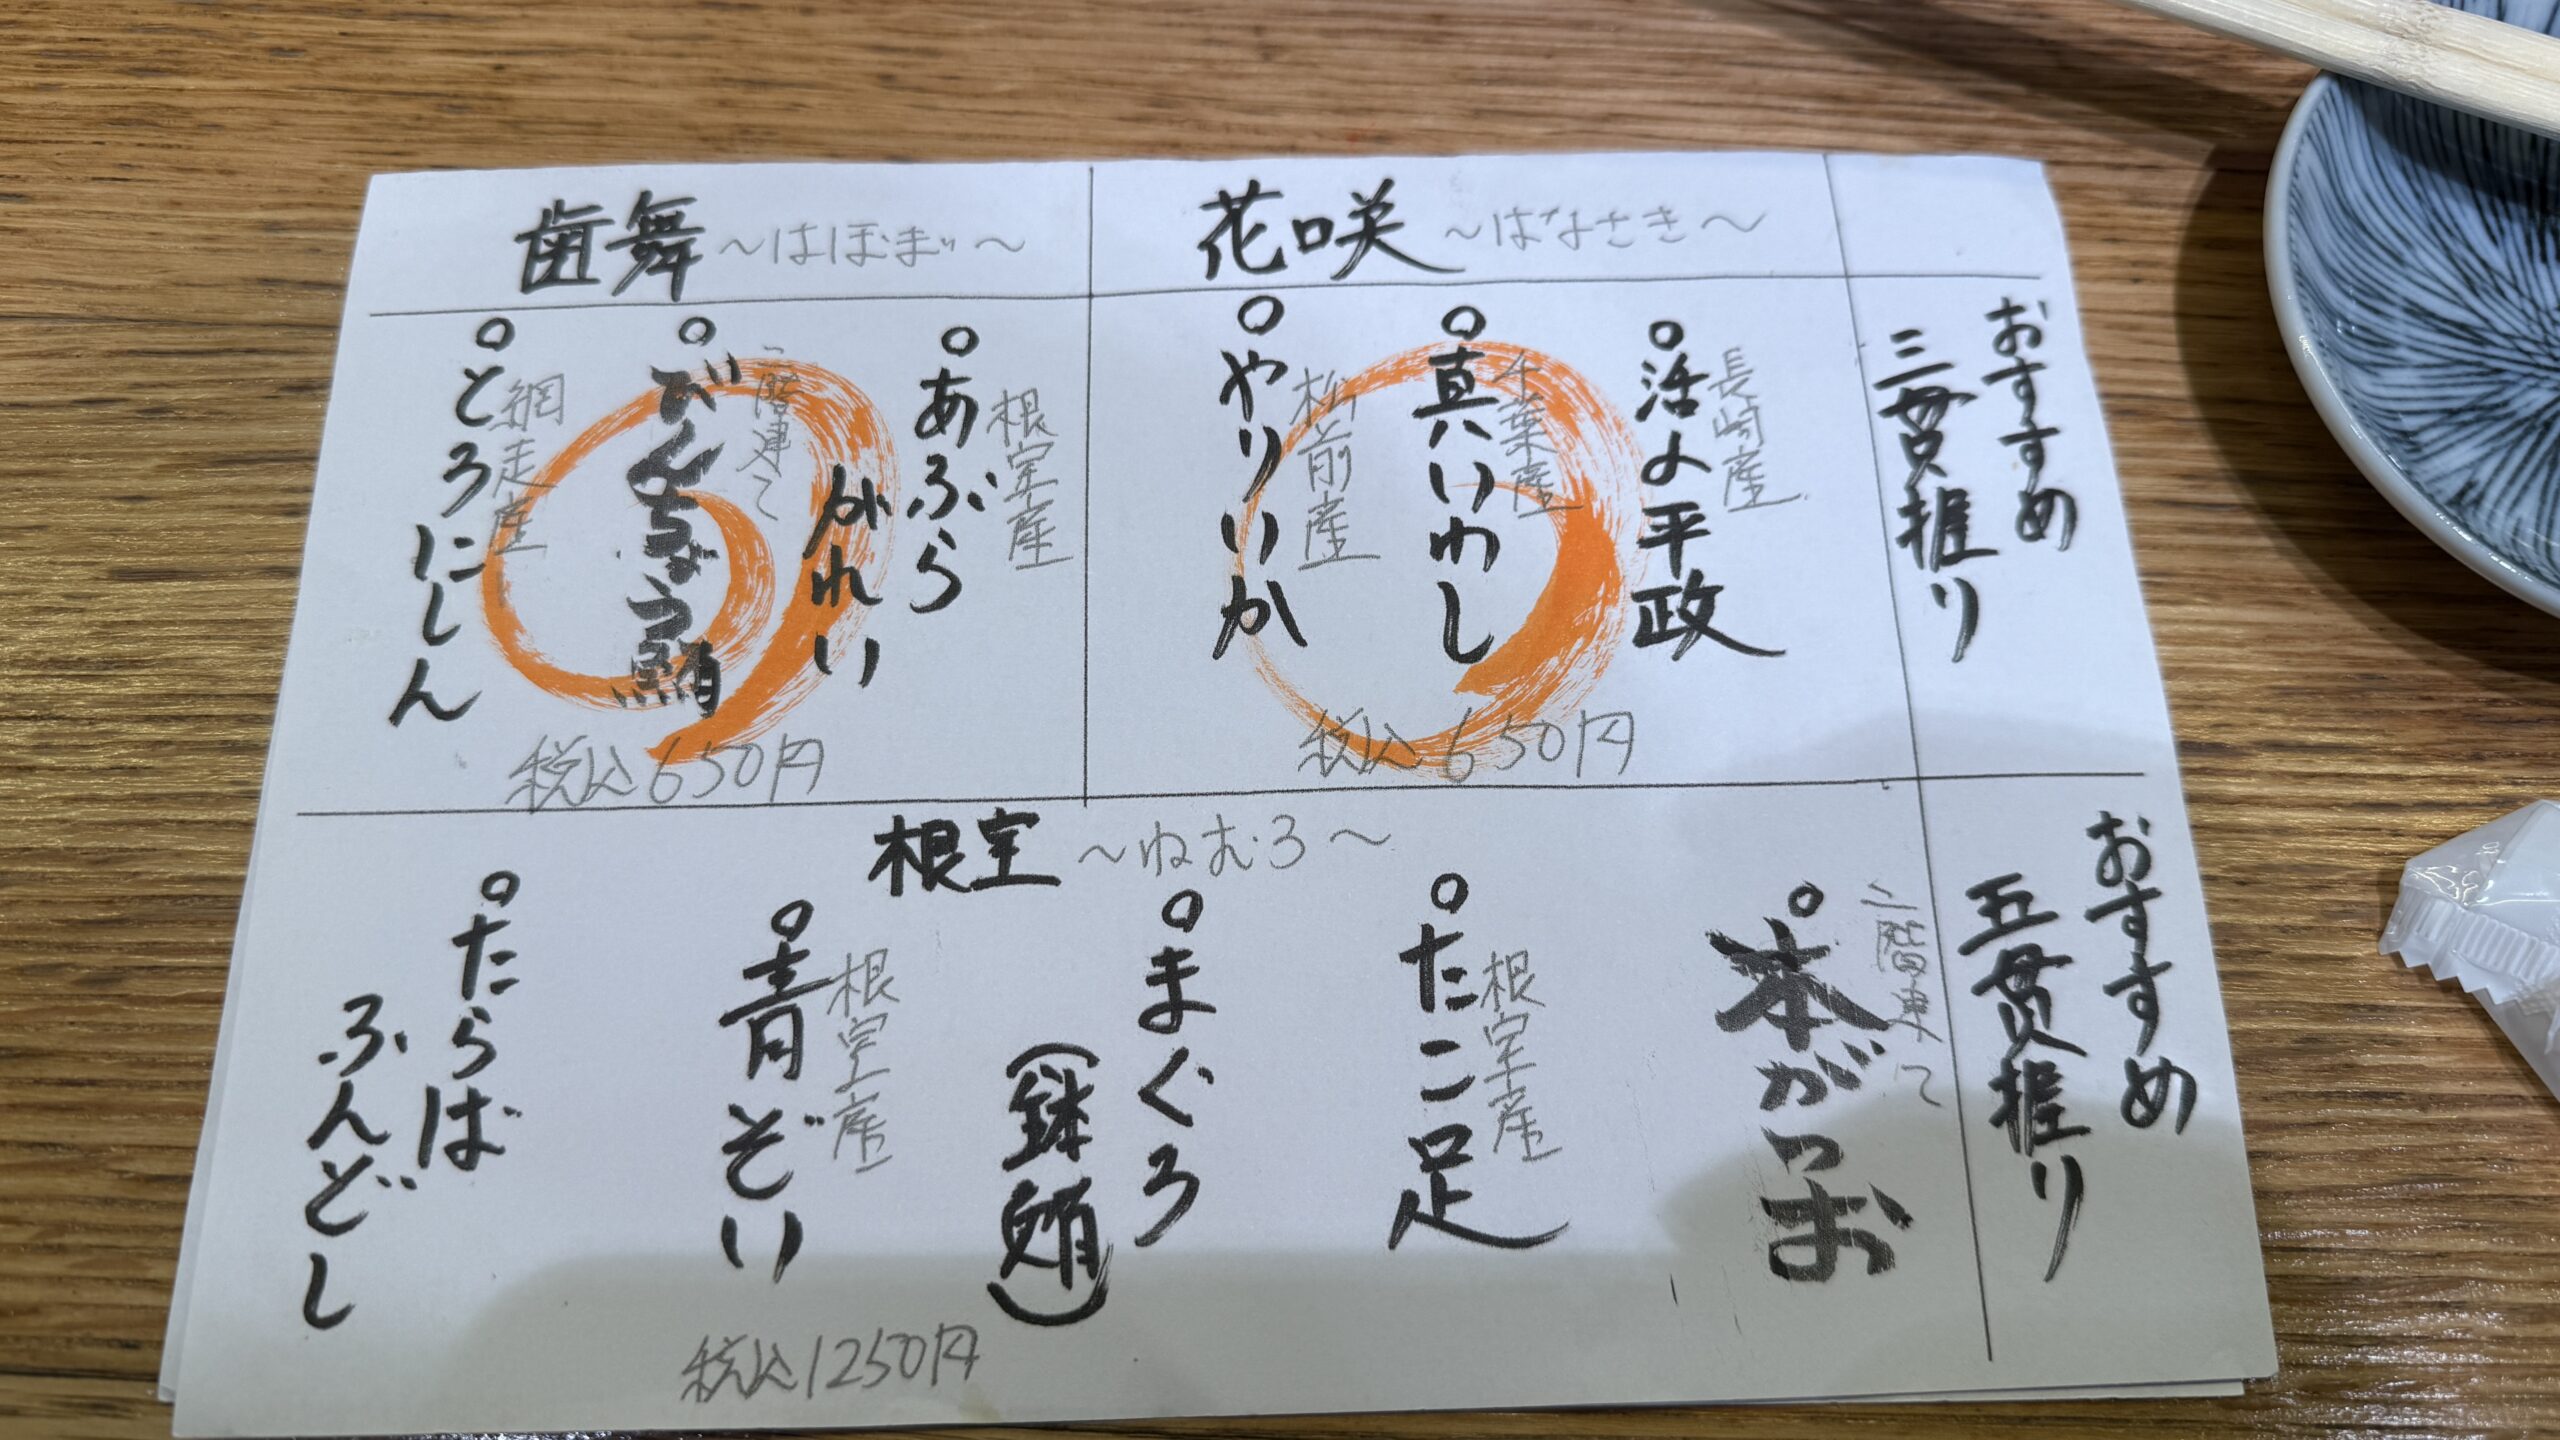 おすすめ
三貫握り
花咲 ～はなさき～
○活〆平政
長崎産
○真いわし
千葉産
○やりいか
松前産
税込650円
歯舞 ～はぼまい～
○あぶら
がれい
根室産
○びんちょう鮪
二階建て
○とろにしん
網走産
税込650円
おすすめ
五貫握り
根室 ～ねむろ～
○本がつお
二階建て
○たこ足
根室産
○まぐろ
(鉢鮪)
○青ぞい
根室産
○たらば
ふんどし
税込1250円